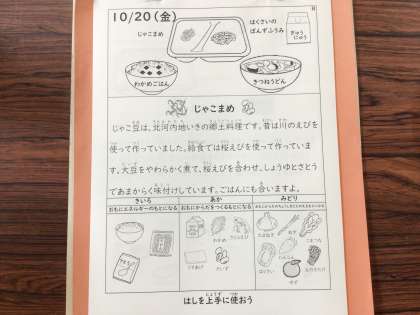 10/20(金)
じゃこまめ
はくさいの
ぽんずふうみ
ぎゅう
にゅう
わかめごはん
きつねうどん
じゃこまめ
じゃこ豆は、北河内地いきの郷土料理です。昔は川のえびを
使って作っていました。給食では桜えびを使って作っていま
す。大豆をやわらかく煮て、桜えびを合わせ、しょうゆとさとう
であまからく味付けしています。ごはんにも合いますよ。
きいろ
あか
みどり
おもにエネルギーのもとになる
おもにからだをつくるもとになる
わかめ
さくらえび
だいず
たまねぎ
ねぎ
はくさい
ゆず
はしを上手に使おう